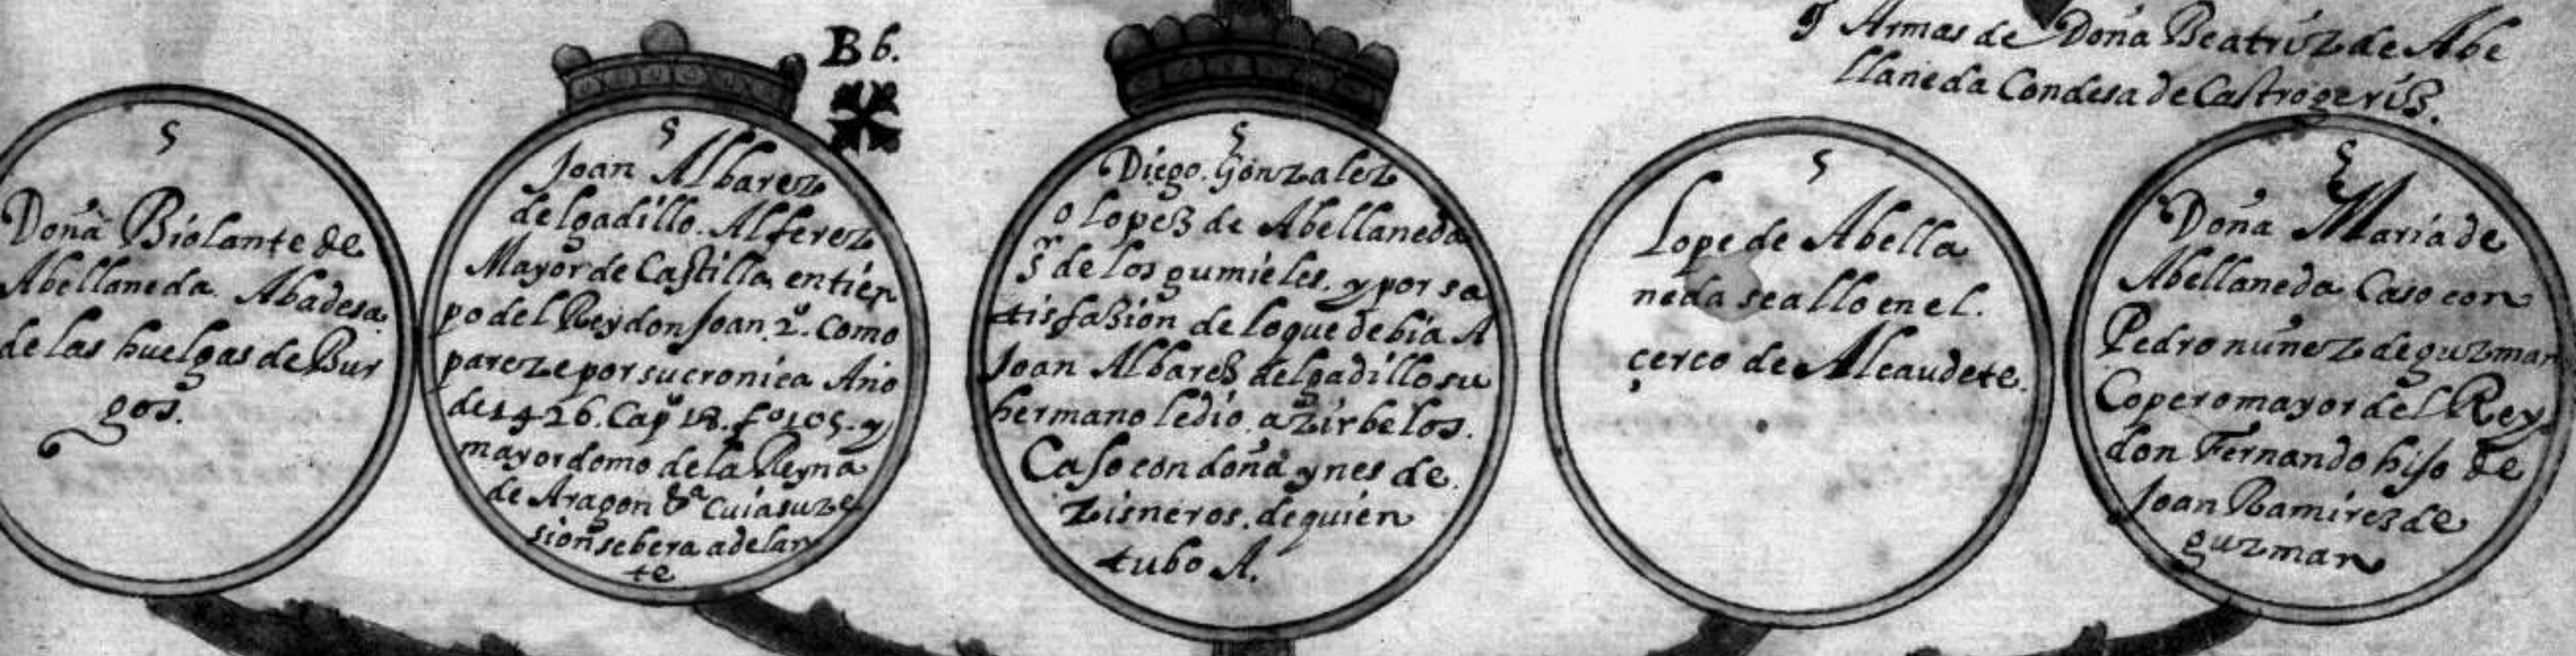 B6.
y Armas de Doña Beatriz de Abe
llaneda Condesa de Castrogeriz.
5
Doña Biolante de
Abellaneda Abadesa
de las huelgas de Bur
gos.
5
Joan Albarez
delgadillo. Alferez
Mayor de Castilla, entien
po del Rey don Joan .2º. Como
pareze por su cronica Año
de 1426. Capº 18. fº 105. y
mayordomo de la Reyna
de Aragon &ª Cuia suze
sion se bera adelan
te
5
Diego. Gonzalez
o lopez de Abellaneda
Sʳ de los gumieles. y por sa
tisfazion de lo que debia A
Joan Albarez delgadillo su
hermano le dio. a Zirbelos.
Caso con doña ynes de.
Zisneros. de quien
tubo A.
5
Lope de Abella
neda se allo en el.
çerco de Alcaudete.
5
Doña Maria de
Abellaneda Caso con
Pedro nuñez de guzman
Copero mayor del Rey
don Fernando hijo de
Joan Ramirez de
guzman